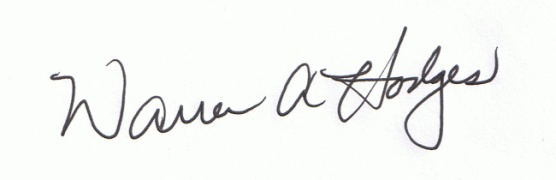 Warren A Hodges